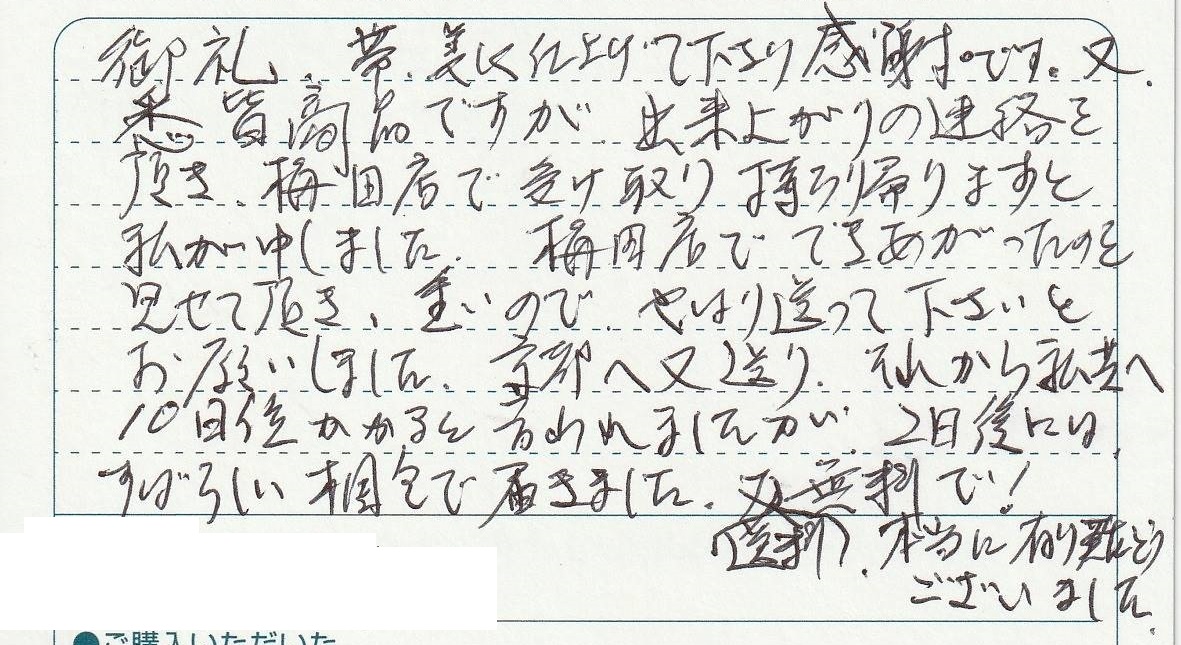 御礼、帯、美しく仕上げて下さり感謝。です。又、
悉皆高品ですが、出来上がりの連絡を
頂き、梅田店で受け取り持ち帰りますと
私が申しました。梅田店でできあがったのを
見せて頂き、重いので、やはり送って下さいと
お願いしました。京都へ又送り、それから私共へ
10日位かかると言われましたが、2日後には、
すばらしい梱包で届きました。又無料で!
(送料)、本当に有り難とう
ございました。
●ご購入いただいた